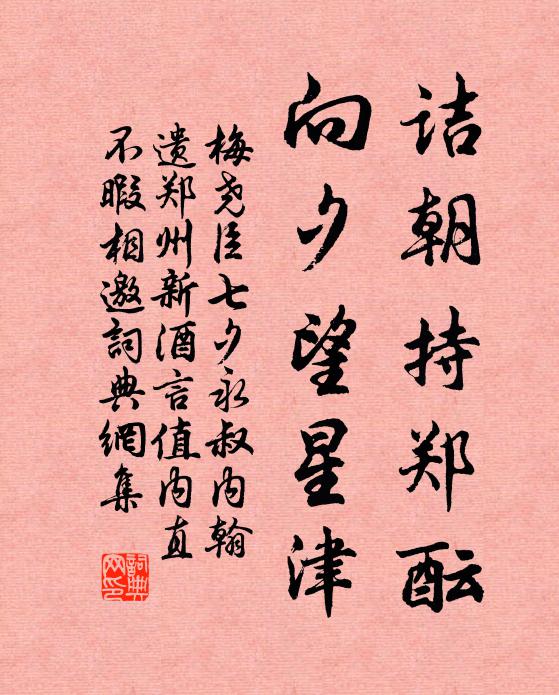 诘朝持郑酝
向夕望星津
梅尧臣七夕永叔内翰
遗郑州新酒言值内直
不暇相邀词典網集
詞典网印